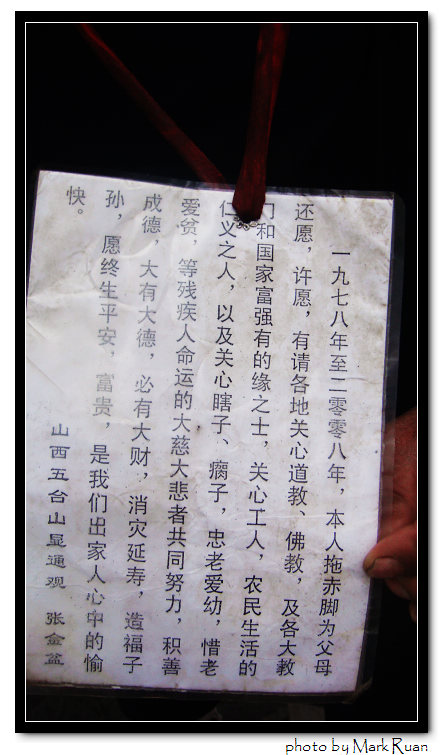 一九七八年至二零零八年，本人拖赤脚为父母
还愿，许愿，有请各地关心道教、佛教，及各大教
门和国家富强有的缘之士，关心工人，农民生活的
仁义之人，以及关心瞎子、瘸子，忠老爱幼，惜老
爱贫，等残疾人命运的大慈大悲者共同努力，积善
成德，大有大德，必有大财，消灾延寿，造福子
孙，愿终生平安，富贵，是我们出家人心中的愉
快。
山西五台山显通观 张金盆
photo by Mark Ruan